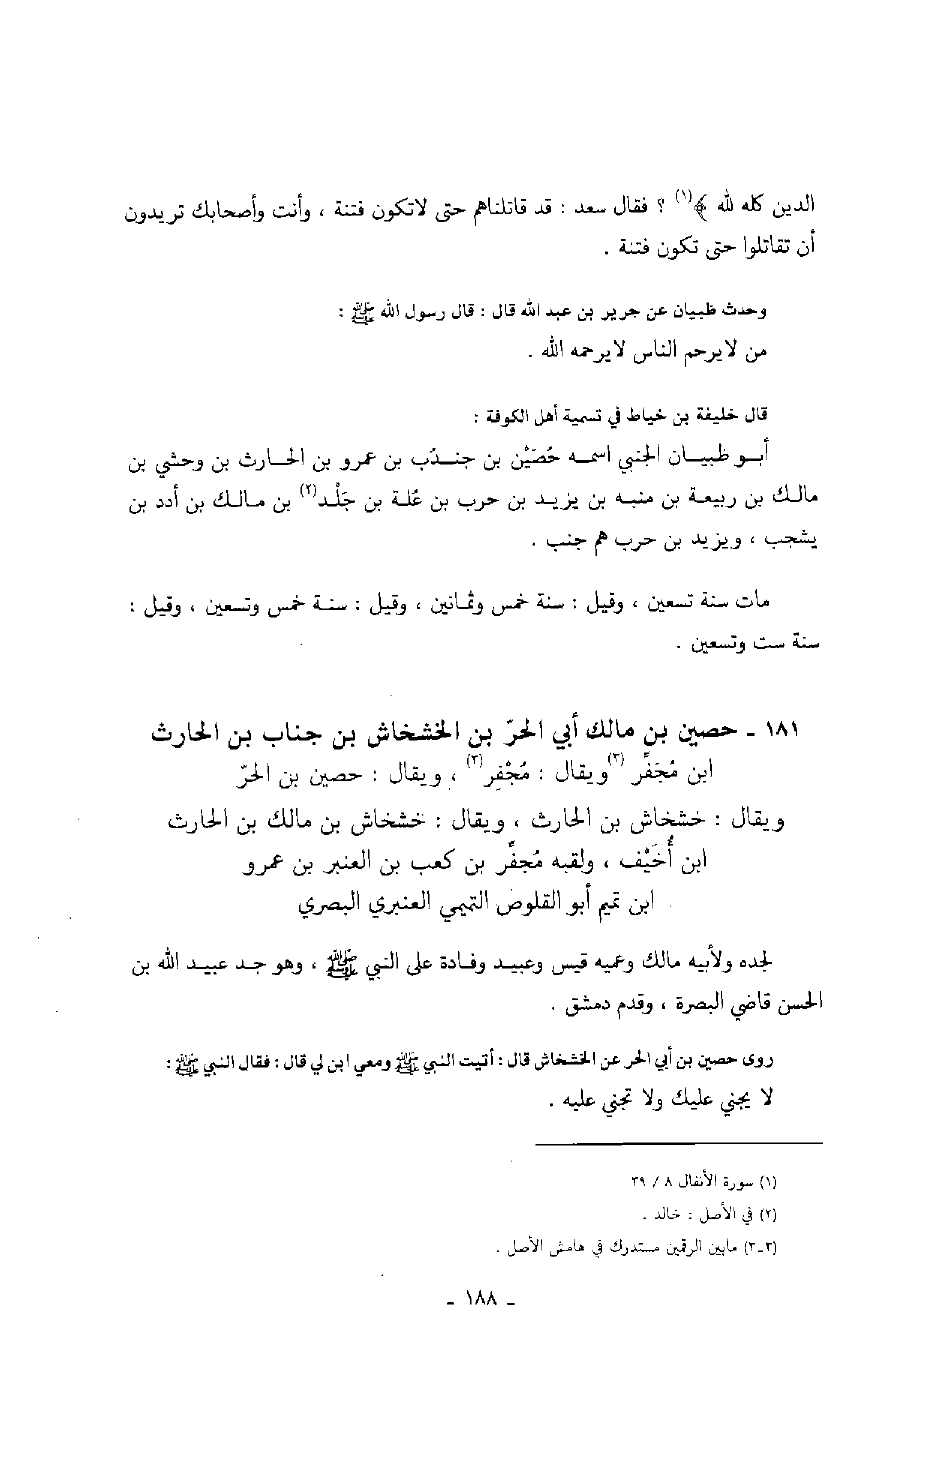 الدين كله لله ﴾(١) ؟ فقال سعد : قد قاتلناهم حتى لاتكون فتنة ، وأنت وأصحابك تريدون
أن تقاتلوا حتى تكون فتنة .
وحدث ظبيان عن جرير بن عبد الله قال : قال رسول الله ﷺ :
من لايرحم الناس لايرحمه الله .
قال خليفة بن خياط في تسمية أهل الكوفة :
أبو ظبيان الجنبي اسمه حُصَيْن بن جندُب بن عمرو بن الحارث بن وحشي بن
مالك بن ربيعة بن منبه بن يزيد بن حرب بن عُلة بن جَلْد(٢) بن مالك بن أدد بن
يشجب ، ويزيد بن حرب هم جنب .
مات سنة تسعين ، وقيل : سنة خمس وثمانين ، وقيل : سنة خمس وتسعين ، وقيل :
سنة ست وتسعين .
١٨١ ـ حصين بن مالك أبي الحرّ بن الخشخاش بن جناب بن الحارث
ابن مُجَفِّر (٣)ويقال : مُجْفِر(٣) ، ويقال : حصين بن الحرّ
ويقال : خشخاش بن الحارث ، ويقال : خشخاش بن مالك بن الحارث
ابن أُخَيْف ، ولقبه مُجفِّر بن كعب بن العنبر بن عمرو
ابن تميم أبو القلوص التميمي العنبري البصري
لجده ولأبيه مالك وعميه قيس وعبيد وفادة على النبي ﷺ ، وهو جد عبيد الله بن
الحسن قاضي البصرة ، وقدم دمشق .
روى حصين بن أبي الحر عن الخشخاش قال : أتيت النبي ﷺ ومعي ابن لي قال : فقال النبي ﷺ :
لا يجني عليك ولا تجني عليه .
(١) سورة الأنفال ٨ / ٣٩
(٢) في الأصل : خالد .
(٣-٣) مابين الرقمين مستدرك في هامش الأصل .
ـ ١٨٨ ـ